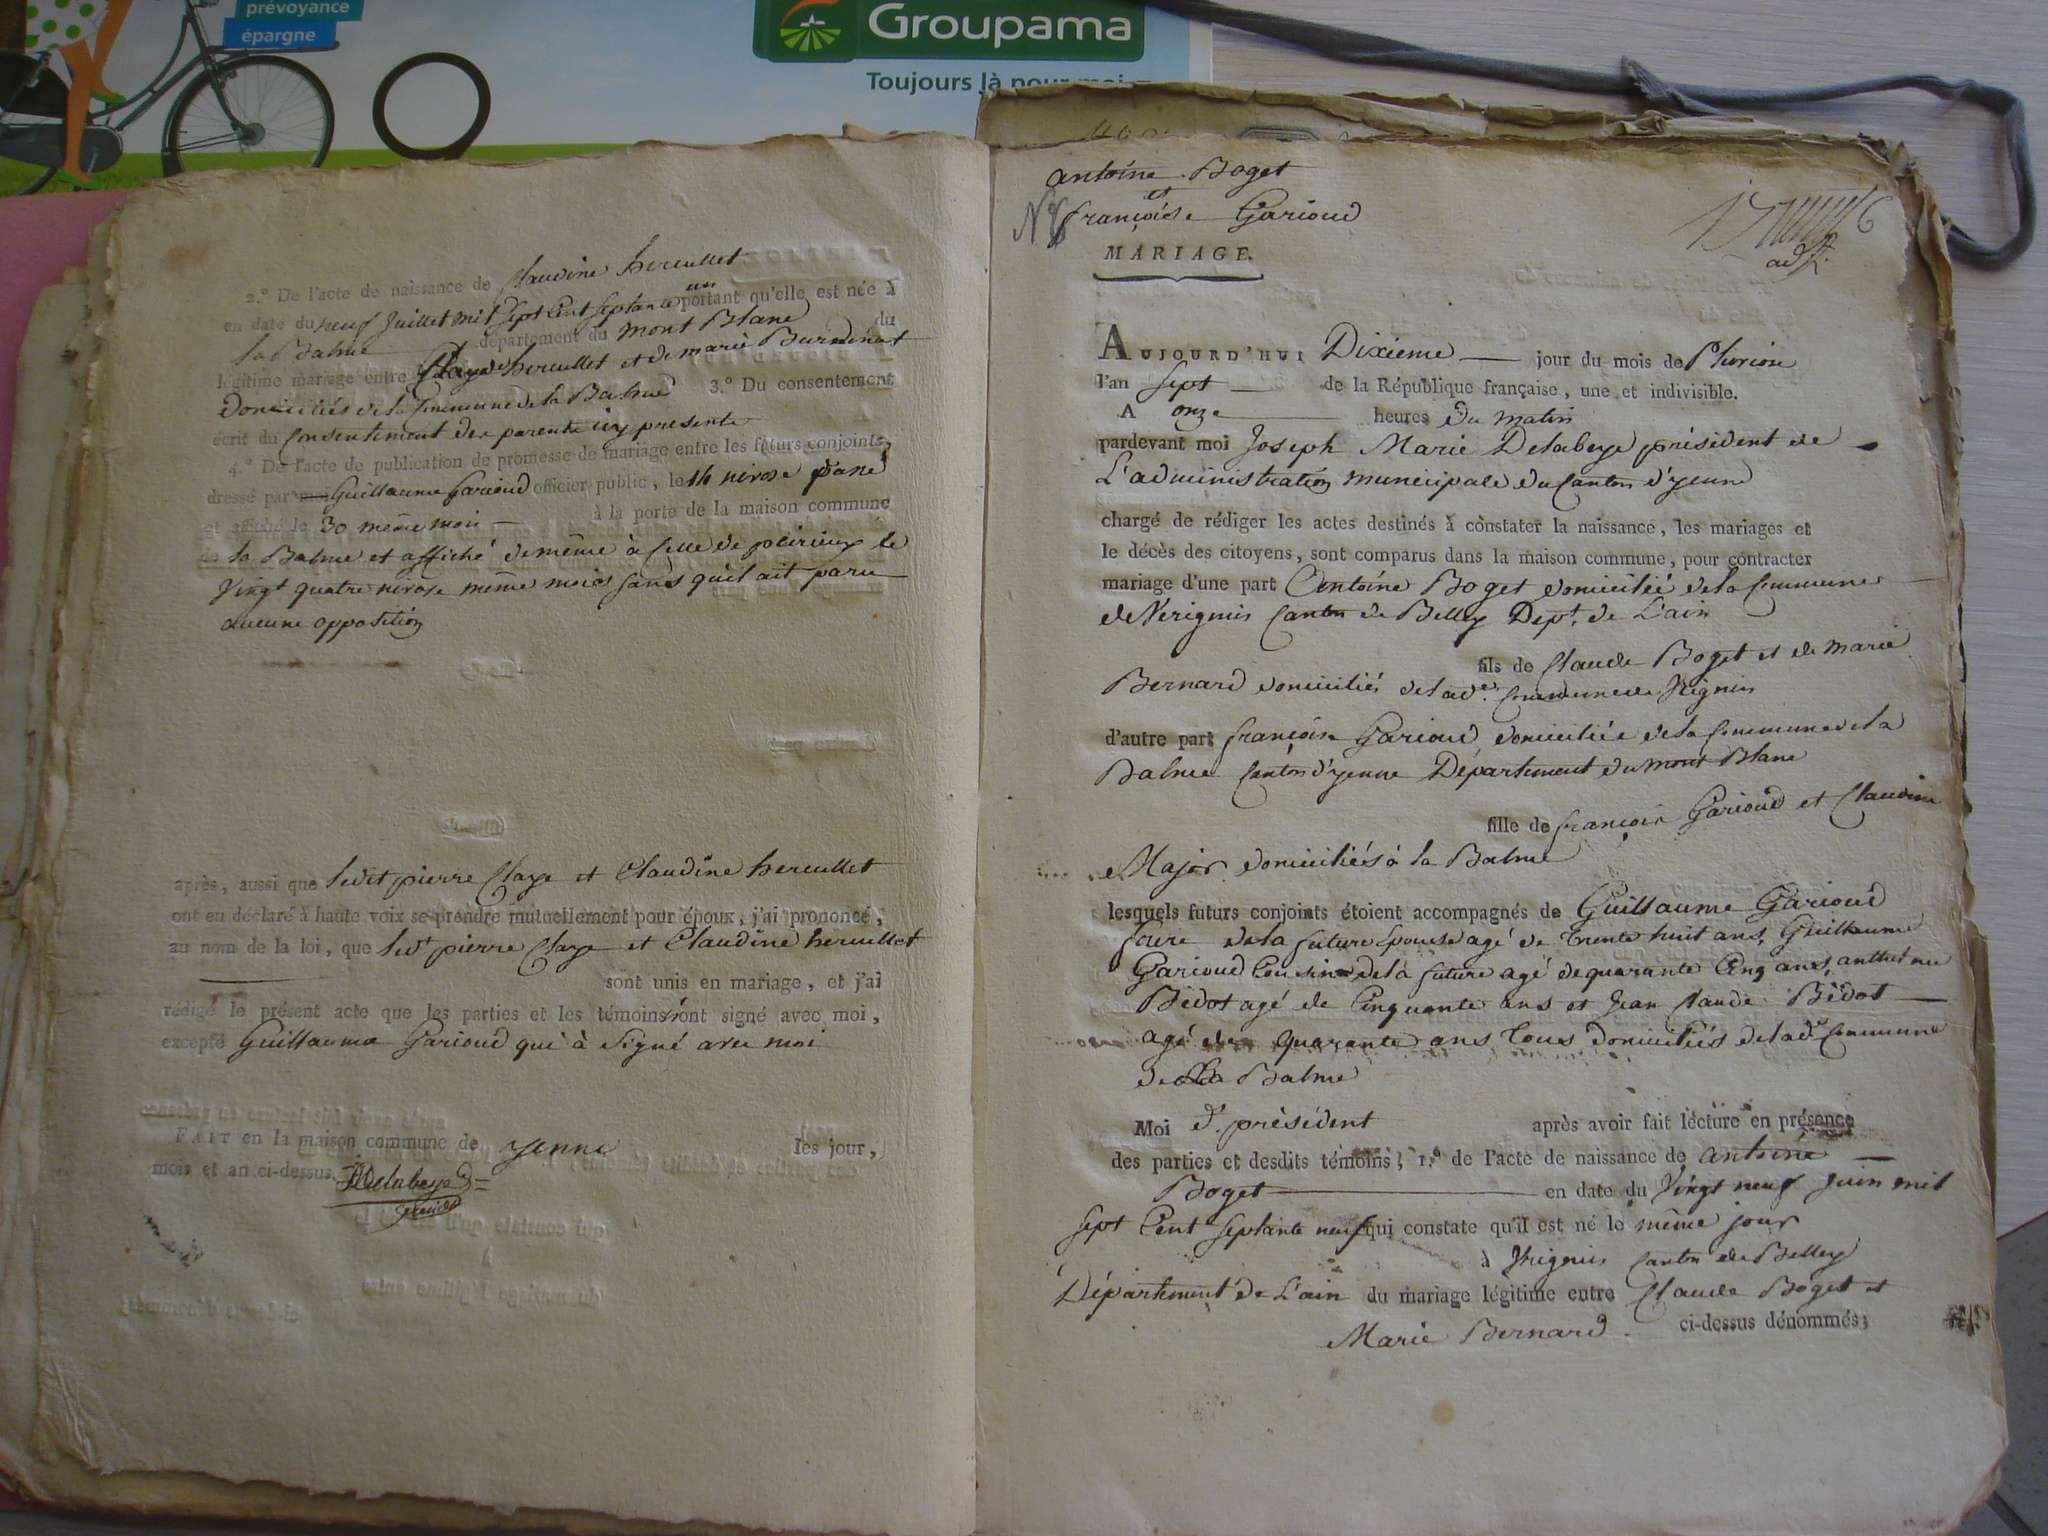 prévoyance
épargne
Groupama
Toujours là pour moi
2.º De l'acte de naissance de Claudine hereullet
en date du neuf Juillet mil sept Cent septante un portant qu'elle est née à
la Balme département du mont Blanc du
légitime mariage entre Claude hereullet et de marie Burdinat
domiciliés de la Commune de la Balme 3.º Du consentement
écrit du Consentement des parents icy presents
4.º De l'acte de publication de promesse de mariage entre les futurs conjoints,
dressé par Guillaume Garioud officier public, le 14 nivose
et affiché le 30 même mois à la porte de la maison commune
de la Balme et affiché de même à Celle de peirieux le
Vingt quatre nivose même mois sans qu'il ait paru
aucune opposition
après, aussi que ledit pierre Claye et Claudine hereullet
ont eu déclaré à haute voix se prendre mutuellement pour époux, j'ai prononcé,
au nom de la loi, que led.t pierre Claye et Claudine hereullet
sont unis en mariage, et j'ai
rédigé le présent acte que les parties et les témoins n'ont signé avec moi,
excepté Guillaume Garioud qui à Signé avec moi
FAIT en la maison commune de yenne les jour,
mois et an ci-dessus. JDelabeye
antoine Boget
et
françoise Garioud
MARIAGE.
AUJOURD'HUI Dixieme jour du mois de Pluviose
l'an sept de la République française, une et indivisible.
A onze heures du matin
pardevant moi Joseph Marie Delabeye président de
L'administration municipale du Canton d'yenne
chargé de rédiger les actes destinés à constater la naissance, les mariages et
le décès des citoyens, sont comparus dans la maison commune, pour contracter
mariage d'une part Antoine Boget domicilié de la Commune
de Verignin Canton de Belley Dept. de L'ain
fils de Claude Boget et de Marie
Bernard domiciliés de lad.e Commune de Virignin
d'autre part françoise Garioud domiciliée de la Commune de la
Balme Canton d'yenne Département du mont Blanc
fille de françois Garioud et Claudine
Major domiciliés à la Balme
lesquels futurs conjoints étoient accompagnés de Guillaume Garioud
frere de la future Epouse agé de trente huit ans, Guillaume
Garioud Cousin de la future agé de quarante Cinq ans, anthelme
Bédot agé de Cinquante ans et Jean Claude Bédot
agé de quarante ans tous domiciliés de lad.e Commune
de la Balme
Moi d. président après avoir fait lecture en présence
des parties et desdits témoins, 1.º de l'acte de naissance de antoine
Boget en date du Vingt neuf Juin mil
sept Cent septante neuf qui constate qu'il est né le même jour
à Virignin Canton de Belley
Département de L'ain du mariage légitime entre Claude Boget et
Marie Bernard ci-dessus dénommés;